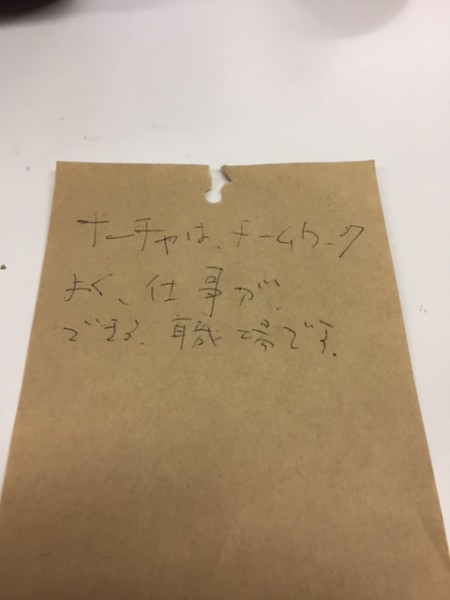 ナーチャは、チームワーク
よく、仕事が
できる、職場です。